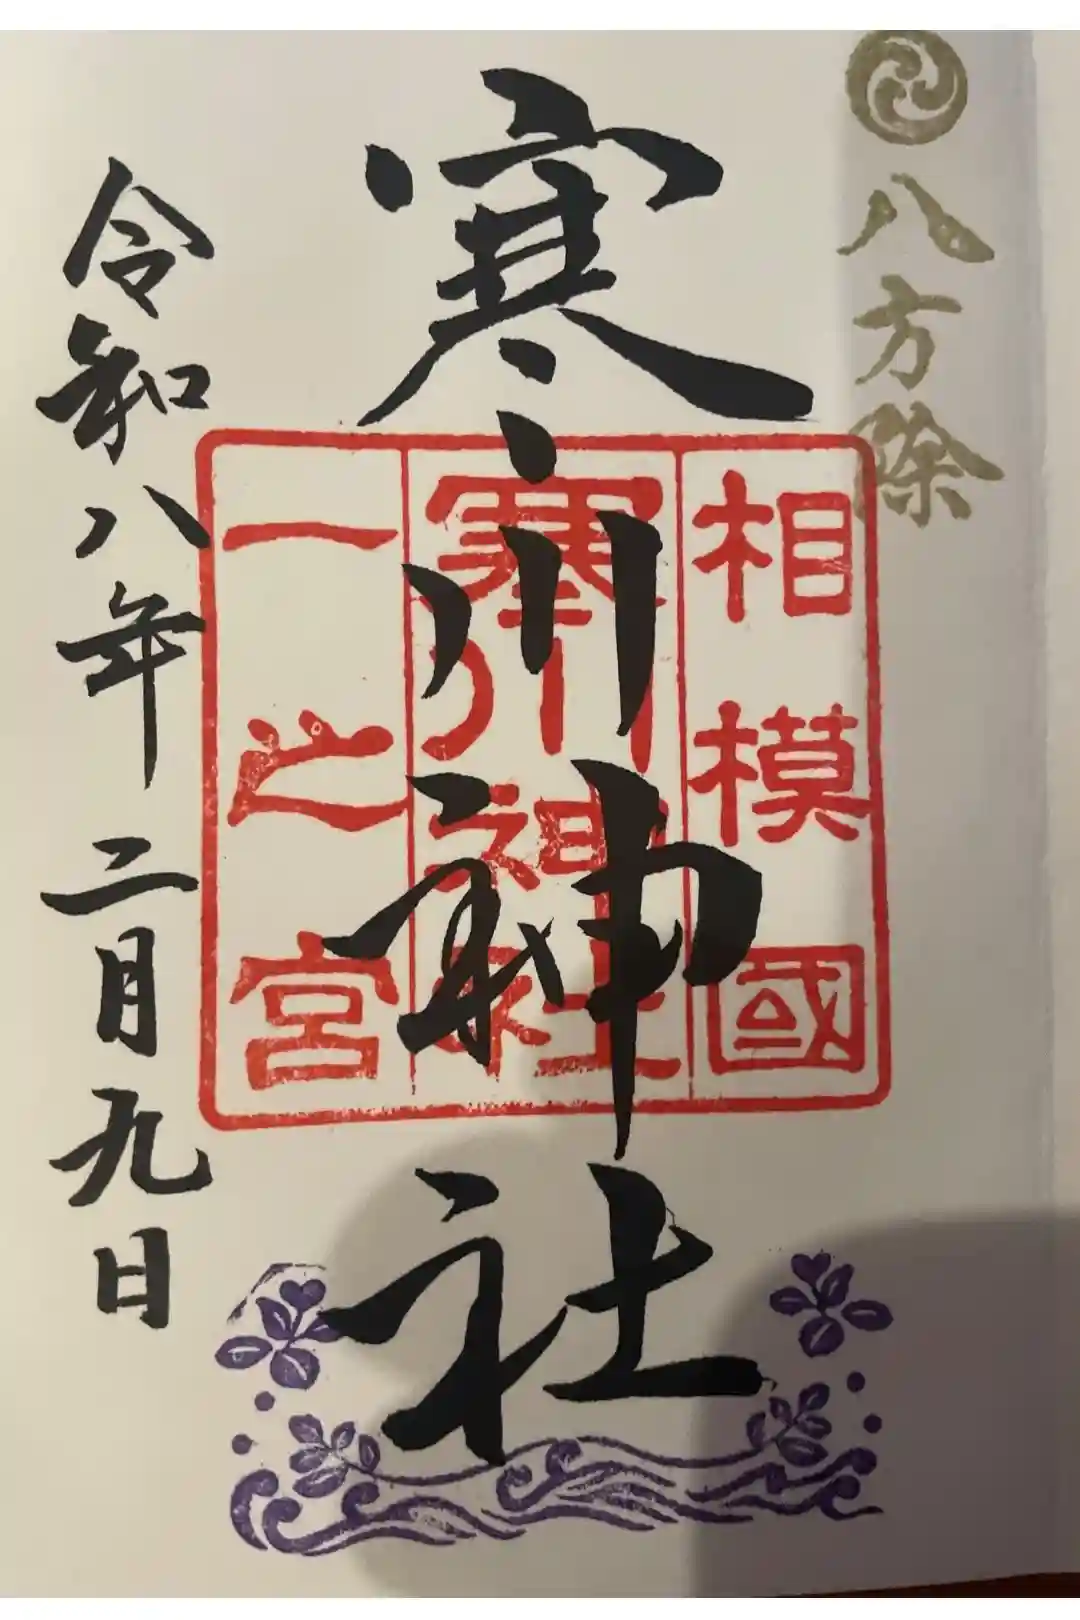 八方除
相模國
寒川神社
一之宮
寒川神社
令和八年二月九日